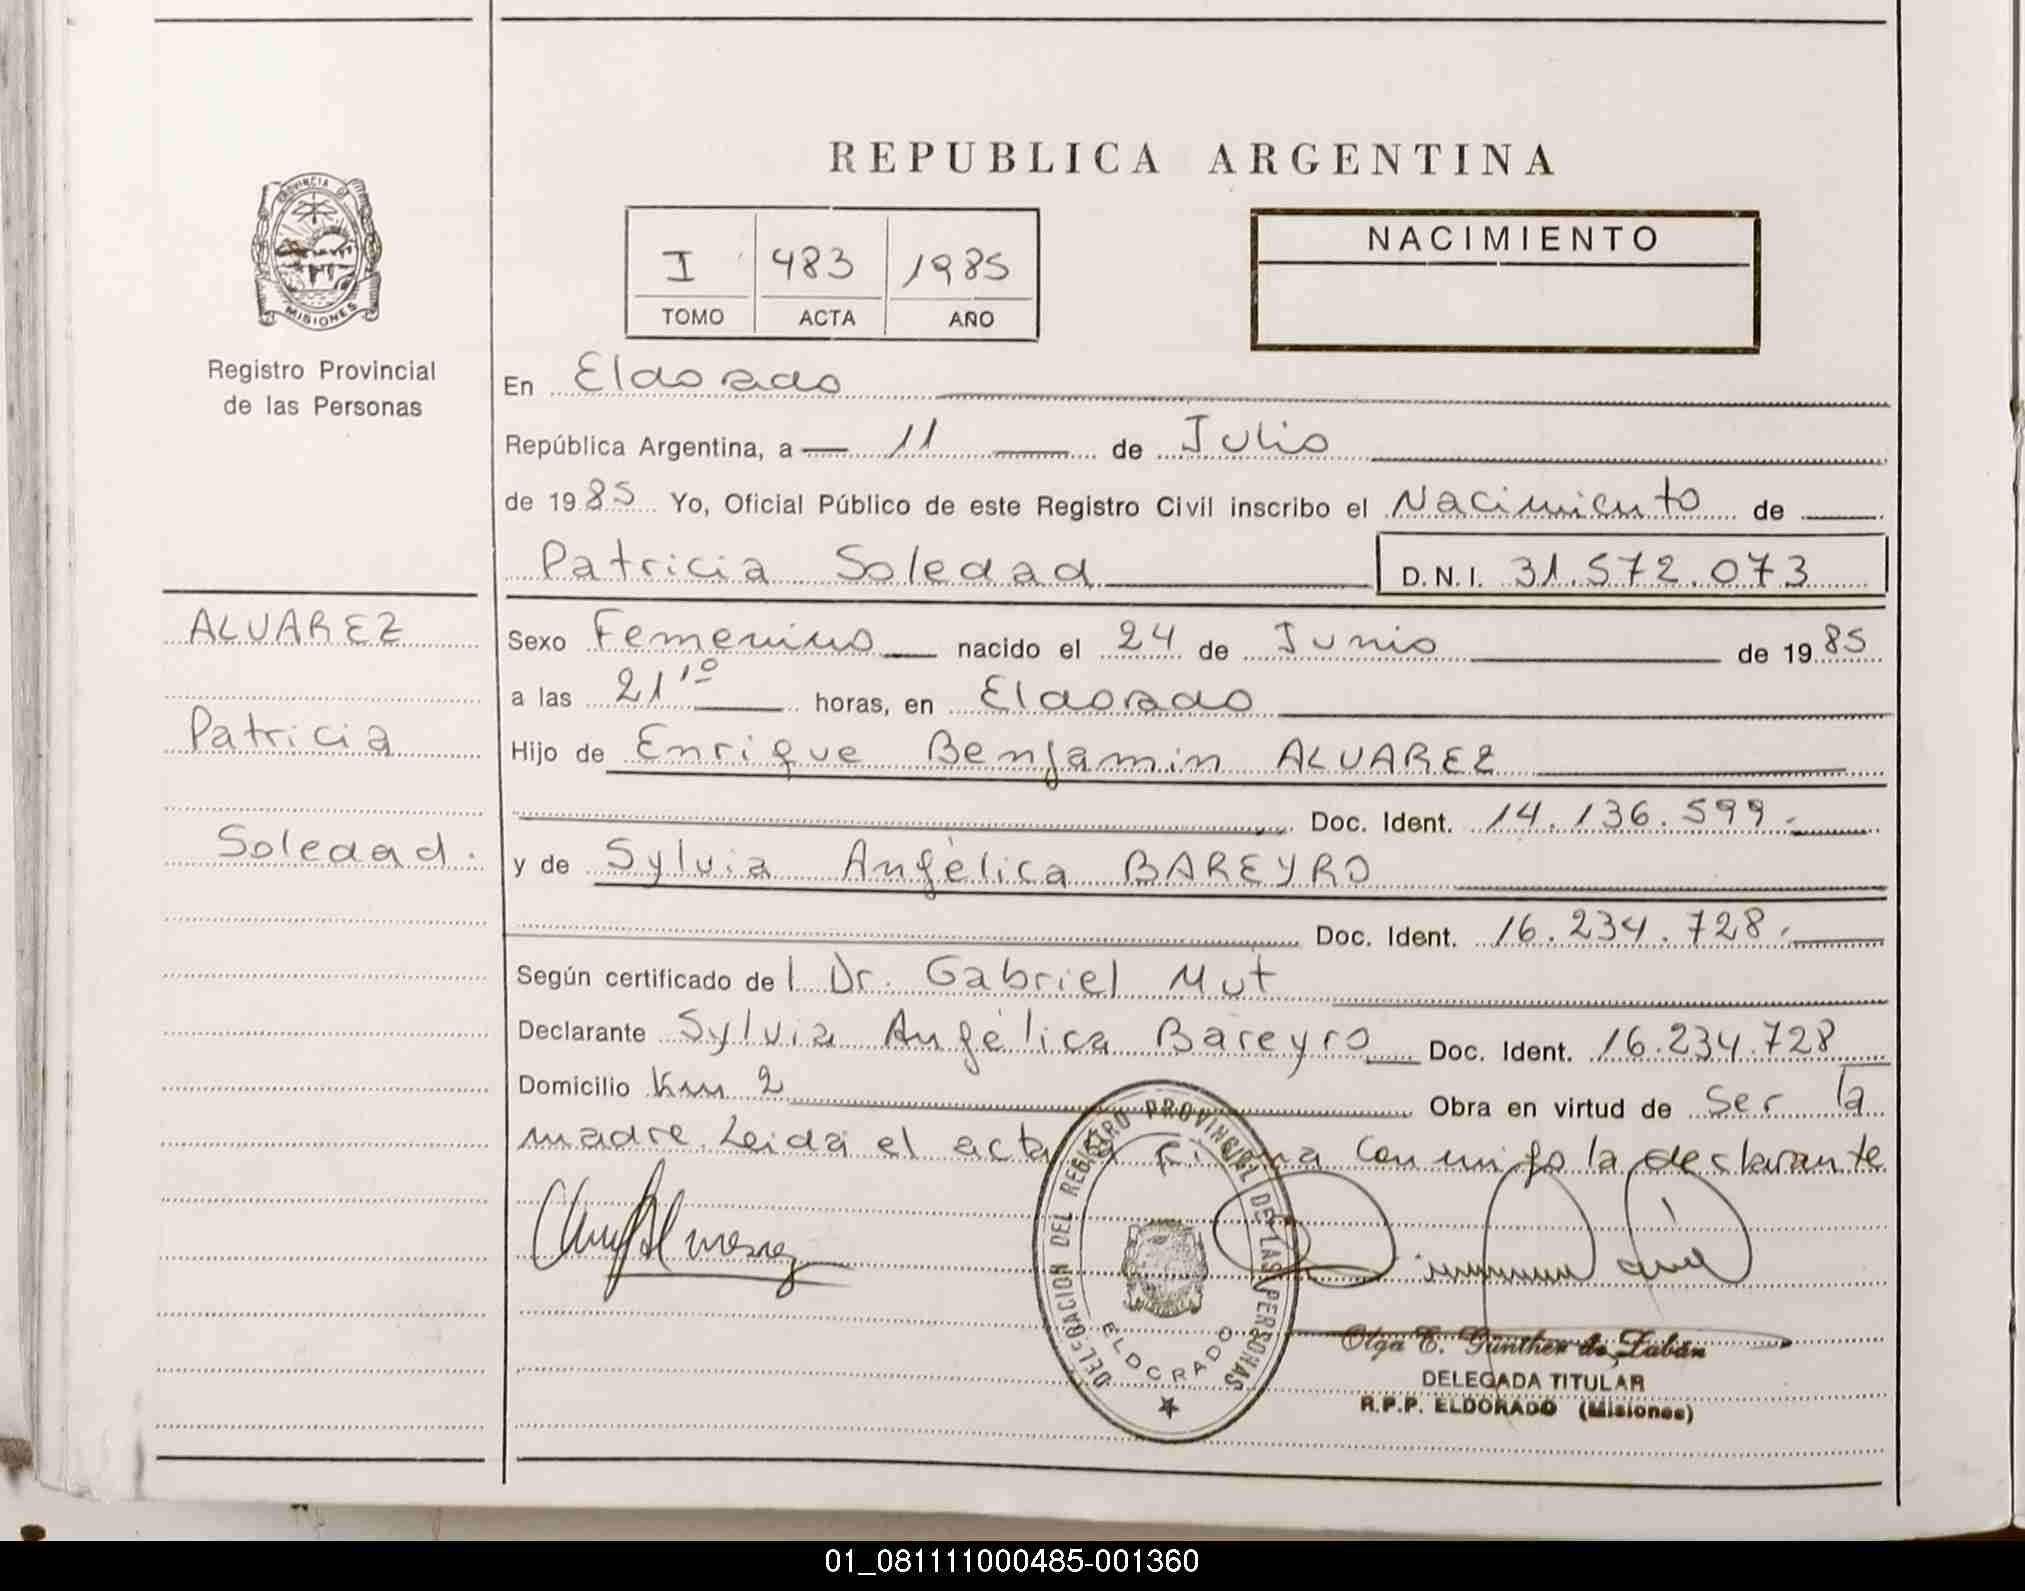 REPUBLICA ARGENTINA
PROVINCIA DE
MISIONES
Registro Provincial
de las Personas
I 483 1985
TOMO ACTA AÑO
NACIMIENTO
En Eldorado
República Argentina, a 11 de Julio
de 1985 Yo, Oficial Público de este Registro Civil inscribo el Nacimiento de
Patricia Soledad D.N.I. 31.572.073
ALVAREZ
Patricia
Soledad.
Sexo Femenino nacido el 24 de Junio de 1985
a las 21 10 horas, en Eldorado
Hijo de Enrique Benjamin ALVAREZ
Doc. Ident. 14.136.599.-
y de Sylvia Angélica BAREYRO
Doc. Ident. 16.234.728.
Según certificado del Dr. Gabriel Mut
Declarante Sylvia Angélica Bareyro Doc. Ident. 16.234.728
Domicilio Km 2 Obra en virtud de Ser la
madre. Leida el acta la firma conmigo la declarante
DELEGACION DEL REGISTRO PROVINCIAL DE LAS PERSONAS
ELDORADO
Olga E. Günther de Labán
DELEGADA TITULAR
R.P.P. ELDORADO (Misiones)
01_081111000485-001360